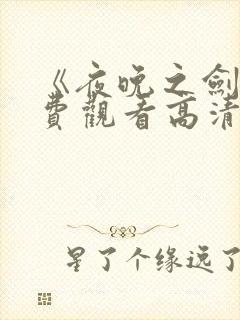 《夜晚之劍
費觀看高清
星了个缘远了